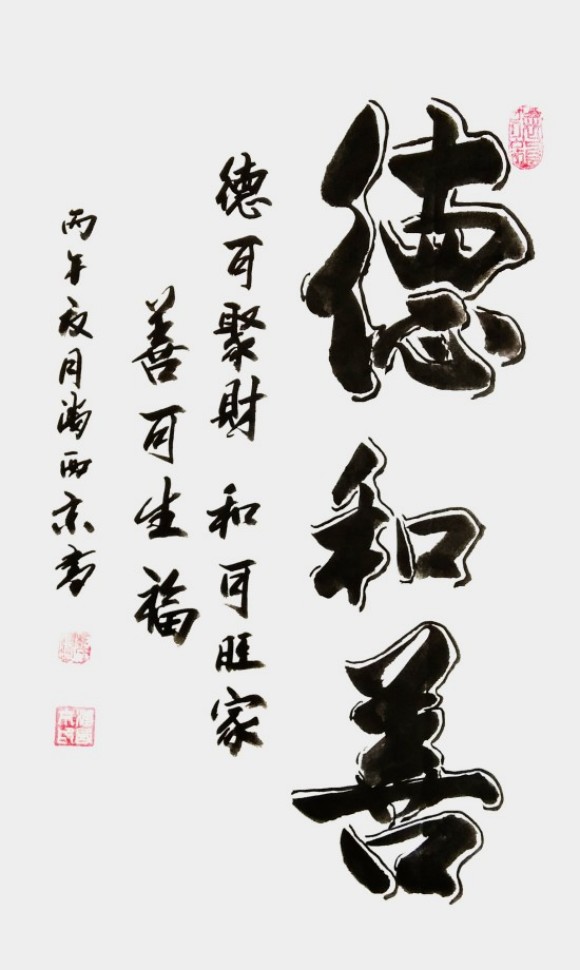 德和善
德可聚財 和可旺家
善可生福
丙午夏月 西京書